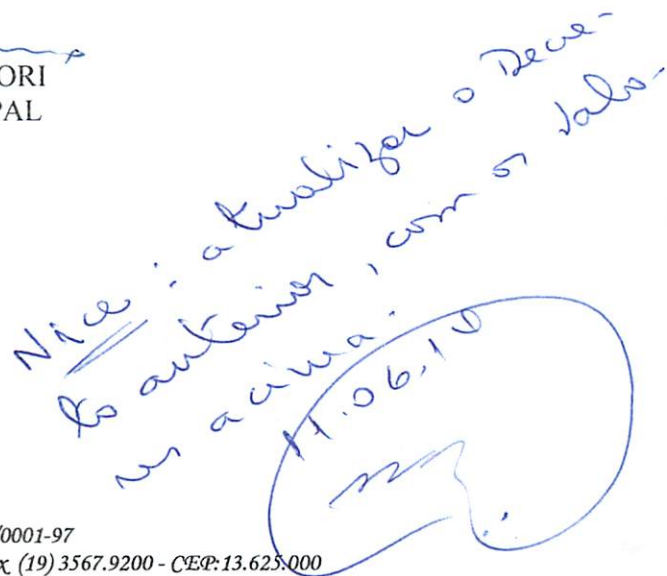 ORI
PAL
Nice: atualizar o Decre-
to anterior, com os valo-
res acima.
11.06.10
/0001-97
x (19) 3567.9200 - CEP:13.625.000